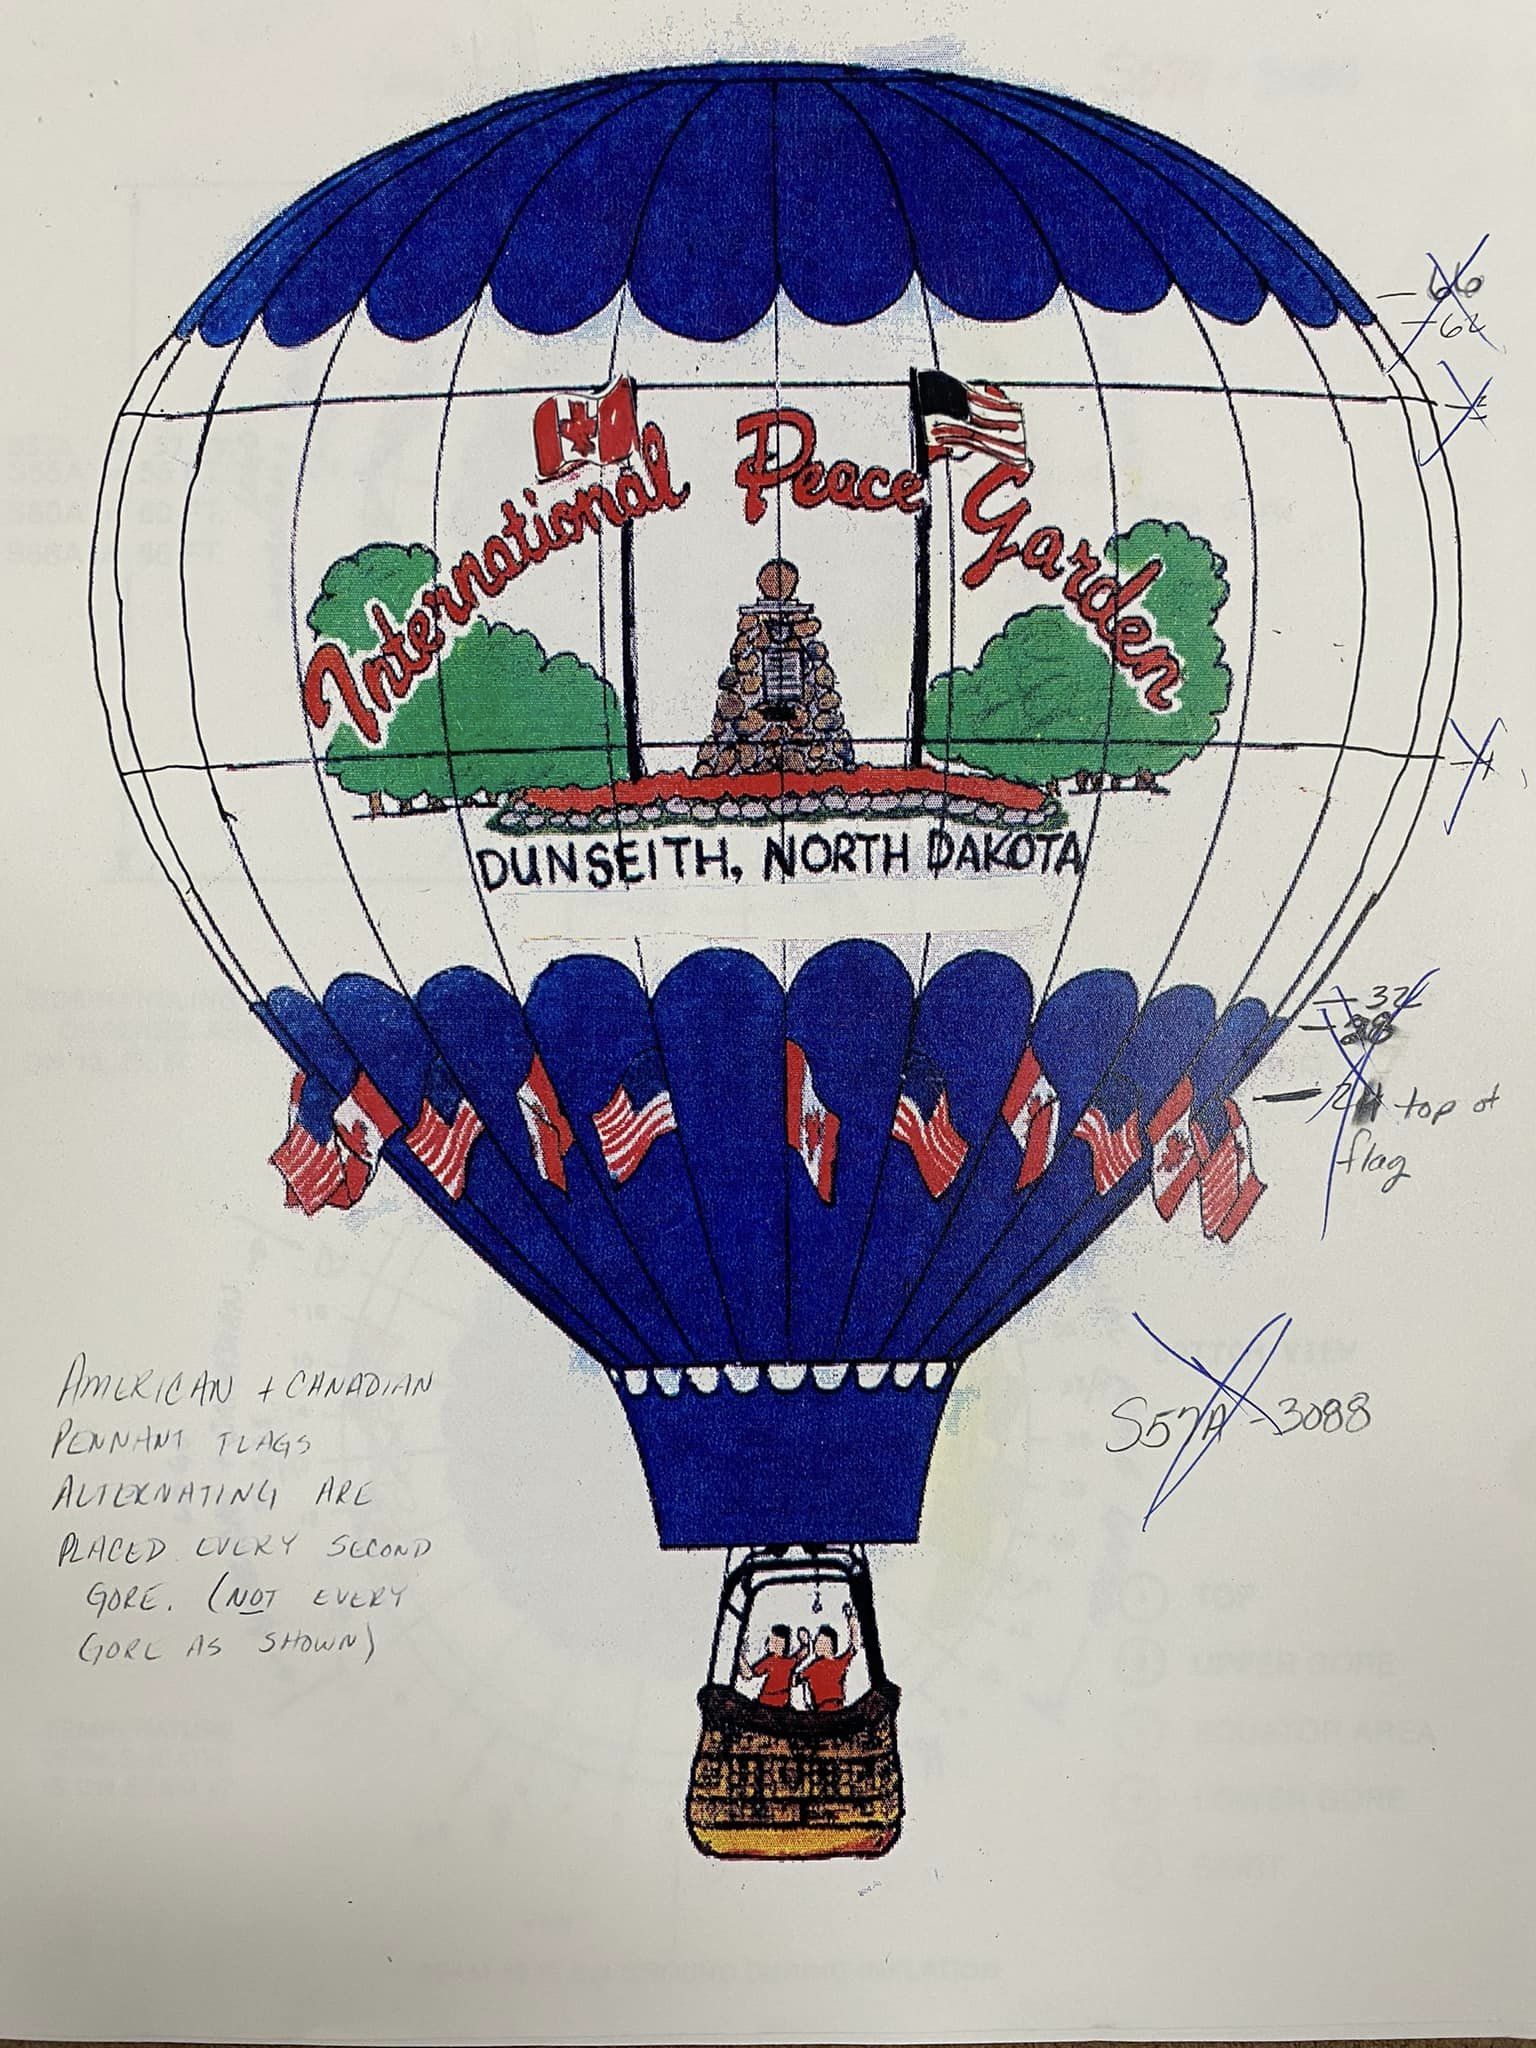 66
62
International Peace Garden
DUNSEITH, NORTH DAKOTA
32
28
24 top of
flag
AMERICAN + CANADIAN
PENNANT FLAGS
ALTERNATING ARE
PLACED EVERY SECOND
GORE. (NOT EVERY
GORE AS SHOWN)
S57A-3088